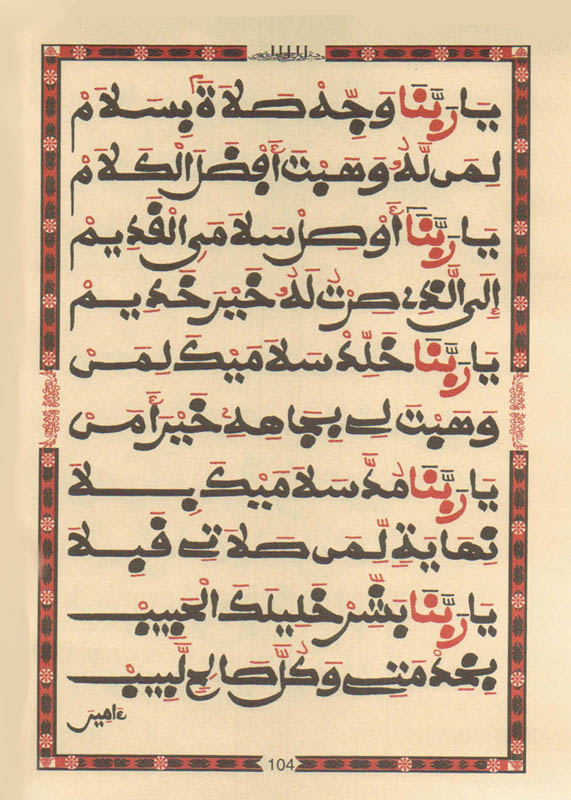 يَا رَبَّنَا وَجِّهْ صَلَاةً بِسَلَامْ
لِمَن لَّهُ وَهَبْتَ أَفْضَلَ الْكَلَامْ
يَا رَبَّنَا أَوْصِلْ سَلَامِىَ الْقَدِيمْ
إِلَى الَّذِى صِرْتُ لَهُ خَيْرَ خَدِيمْ
يَا رَبَّنَا خَلِّدْ سَلَامَيْكَ لِمَنْ
وَهَبْتَ لِى بِجَاهِهِ خَيْرَ أَمَنْ
يَا رَبَّنَا مُدَّ سَلَامَيْكَ بِلَا
نِهَايَةٍ لِّمَن صَلَاتِى قَبِلَا
يَا رَبَّنَا بَشِّرْ خَلِيلَكَ الْحَبِيبْ
بِخِدْمَتِى وَكُلَّ صَالِحٍ لَّبِيبْ
ءامين
104